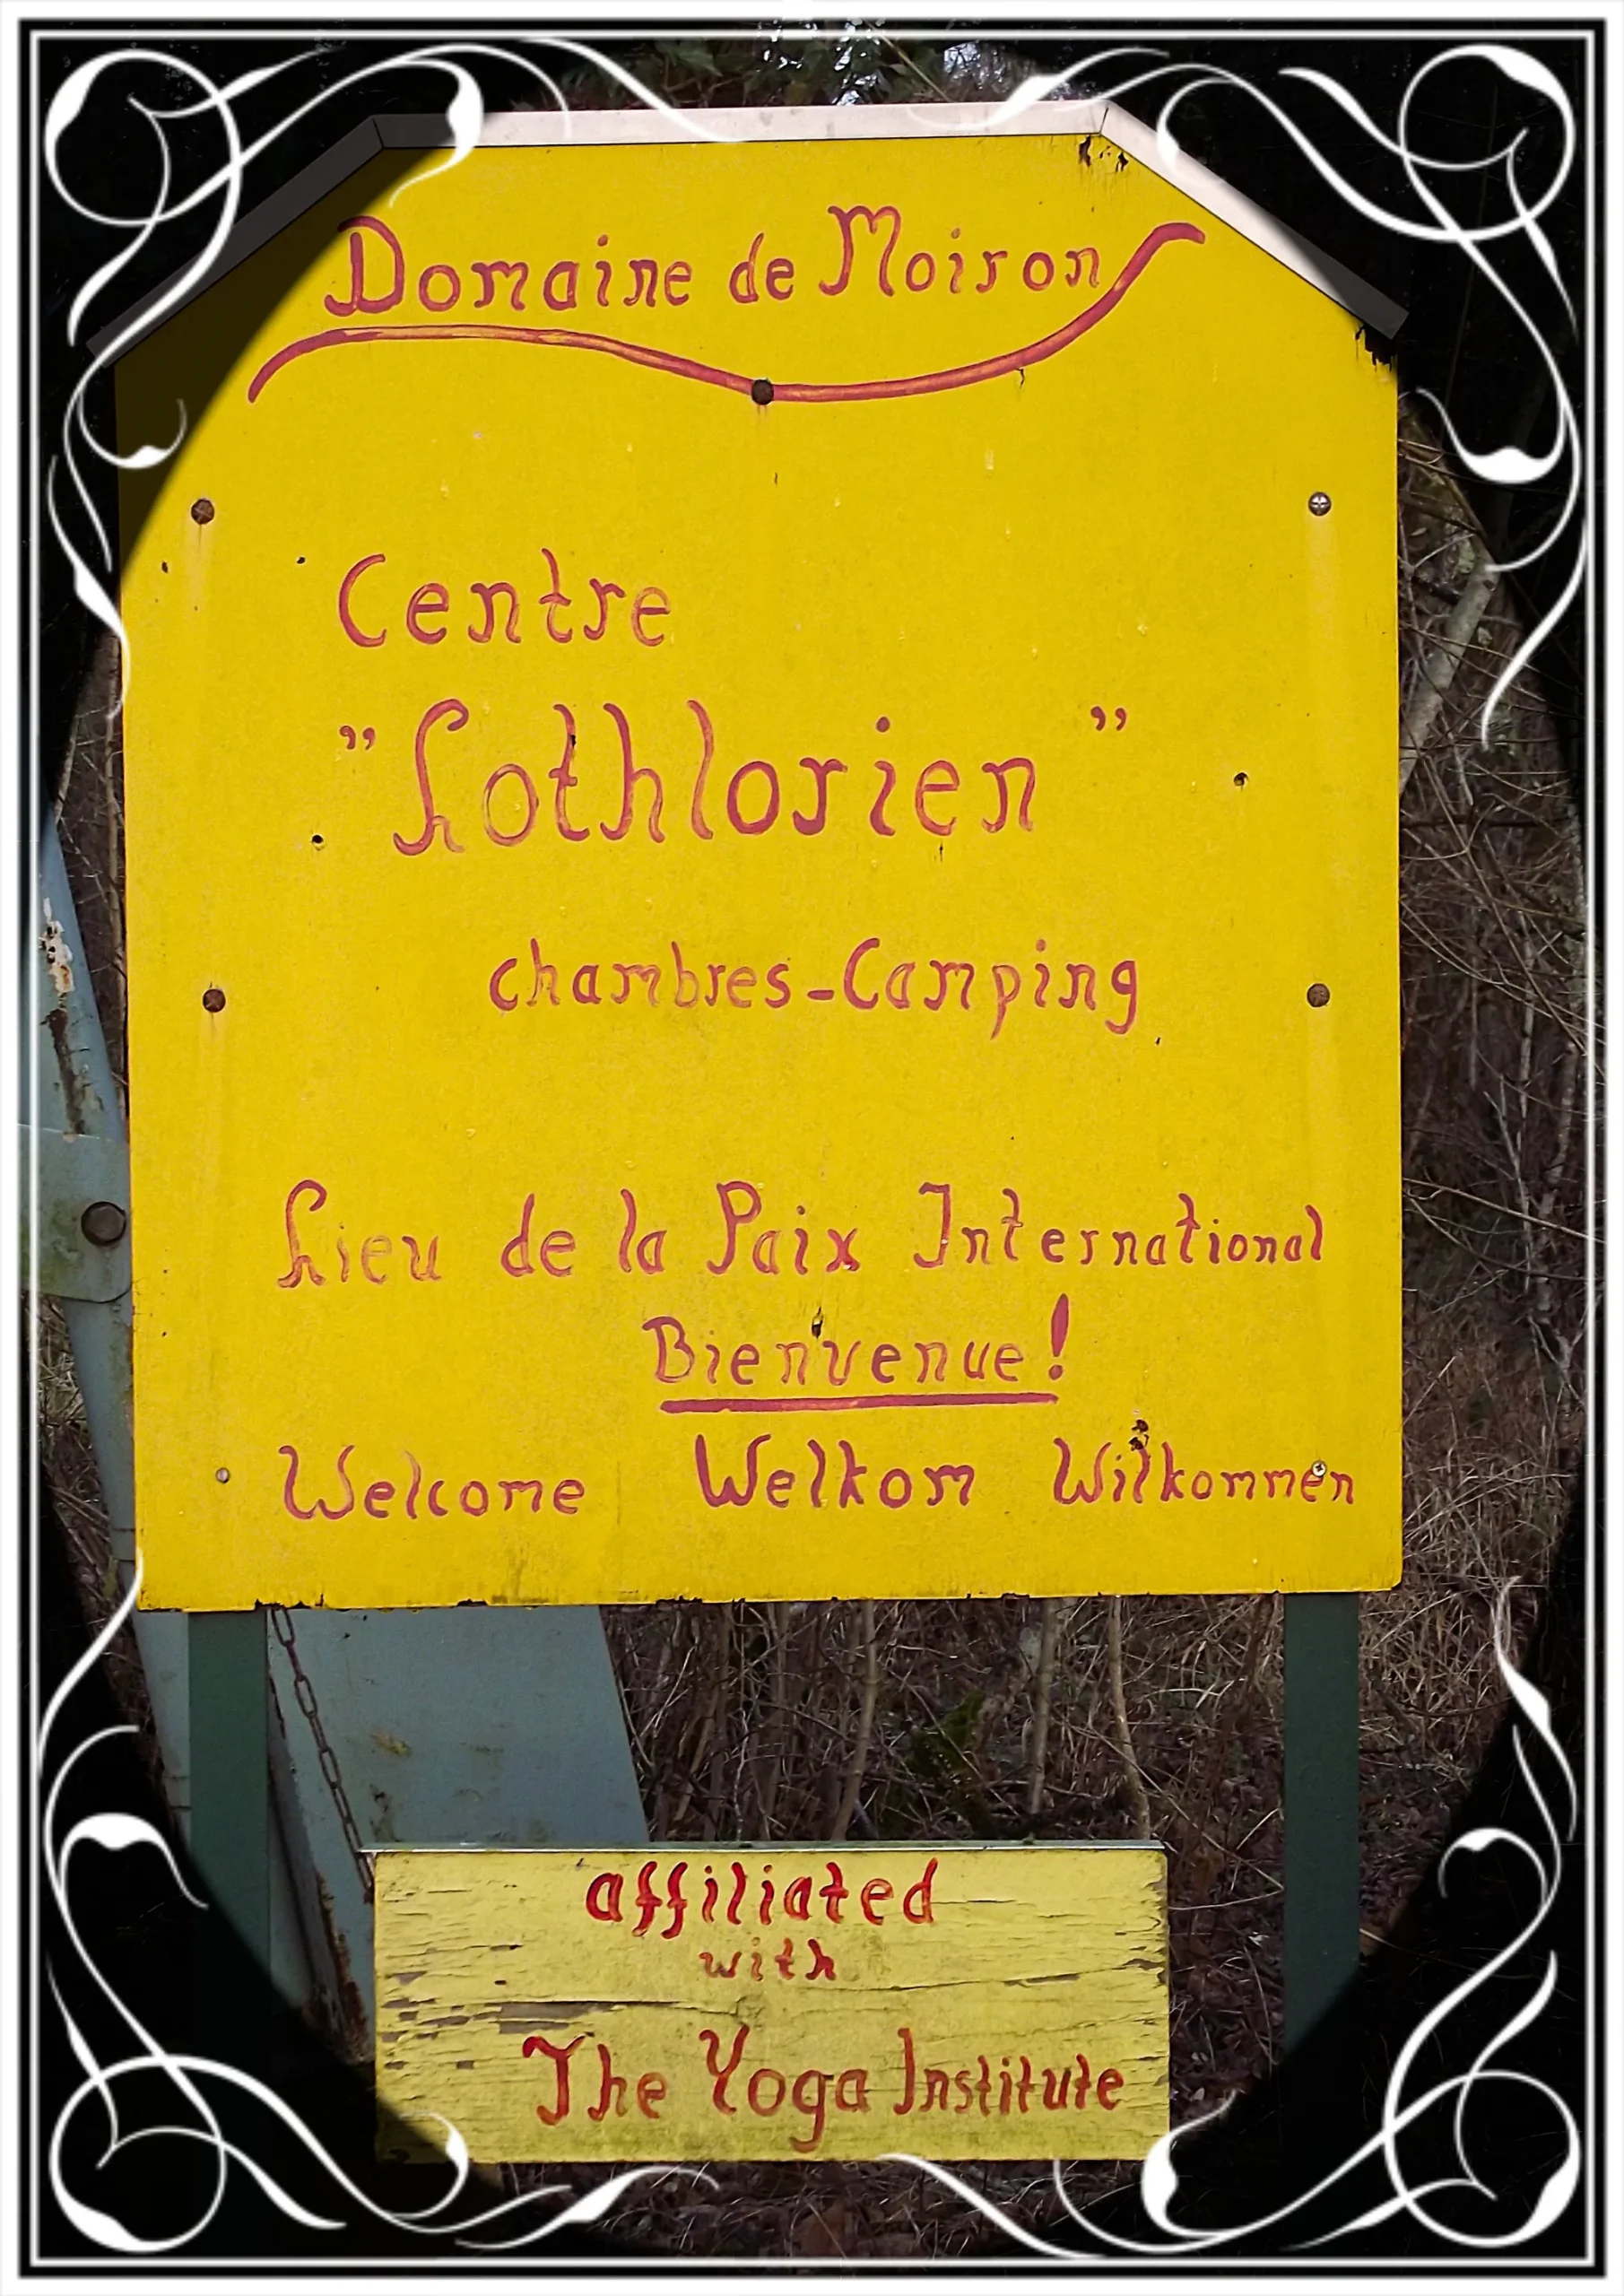 Domaine de Moiron
Centre
"Lothlorien"
chambres-Camping
Lieu de la Paix International
Bienvenue!
Welcome Welkom Wilkommen
affiliated
with
The Yoga Institute